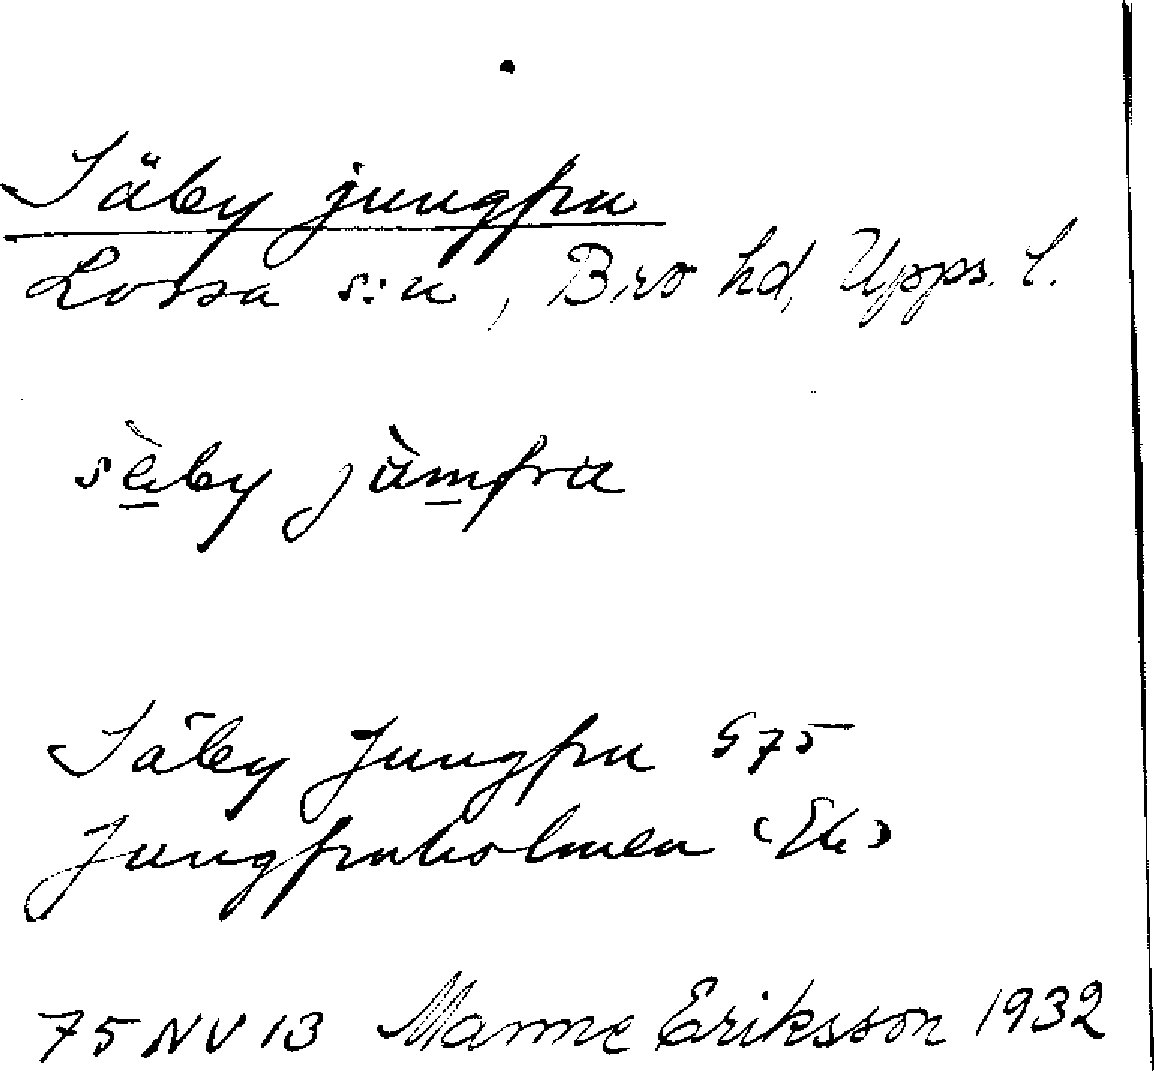 Säby jungfru
Lossa s:n, Bro hd, Upps. l.
sèby jùmfru
Säby Jungfru S 75
Jungfruholmen (Ek)
75 NV 13 Manne Eriksson 1932